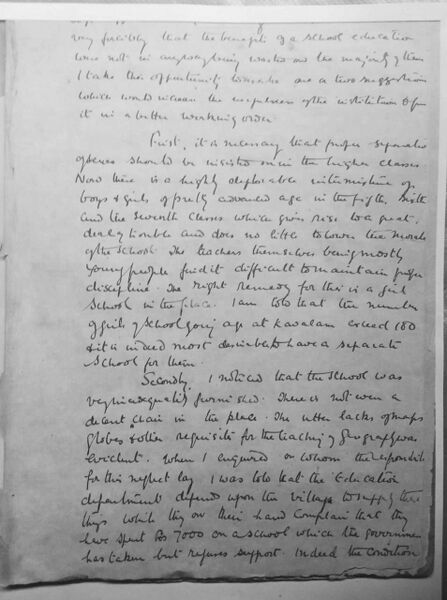 very forcibly that the benefits of a school education
were not in any way being wasted on the majority of them
I take this opportunity to make one or two suggestions
which would increase the usefulness of the institution & put
it in a better working order.
First, it is necessary that proper separation
of sexes should be insisted on in the higher classes.
Now there is a highly deplorable intermixture of
boys & girls of pretty advanced age in the fifth, sixth
and the seventh classes which gives rise to a great
deal of trouble and does no little to lower the morals
of the school. The teachers themselves being mostly
young people find it difficult to maintain proper
discipline. The right remedy for this is a girls
school in the place. I am told that the number
of girls of school going age at Kavalam exceed 180
& it is indeed most desirable to have a separate
school for them.
Secondly, I noticed that the school was
very inadequately furnished. There is not even a
decent chair in the place. The utter lack of maps
globes & other requisites for the teaching of Geography was
evident. When I enquired on whom the responsibility
for this neglect lay I was told that the Education
department depend upon the village to supply these
things while they on their hand complain that they
have spent Rs 7000 on a school which the government
has taken but refuses support. Indeed the condition